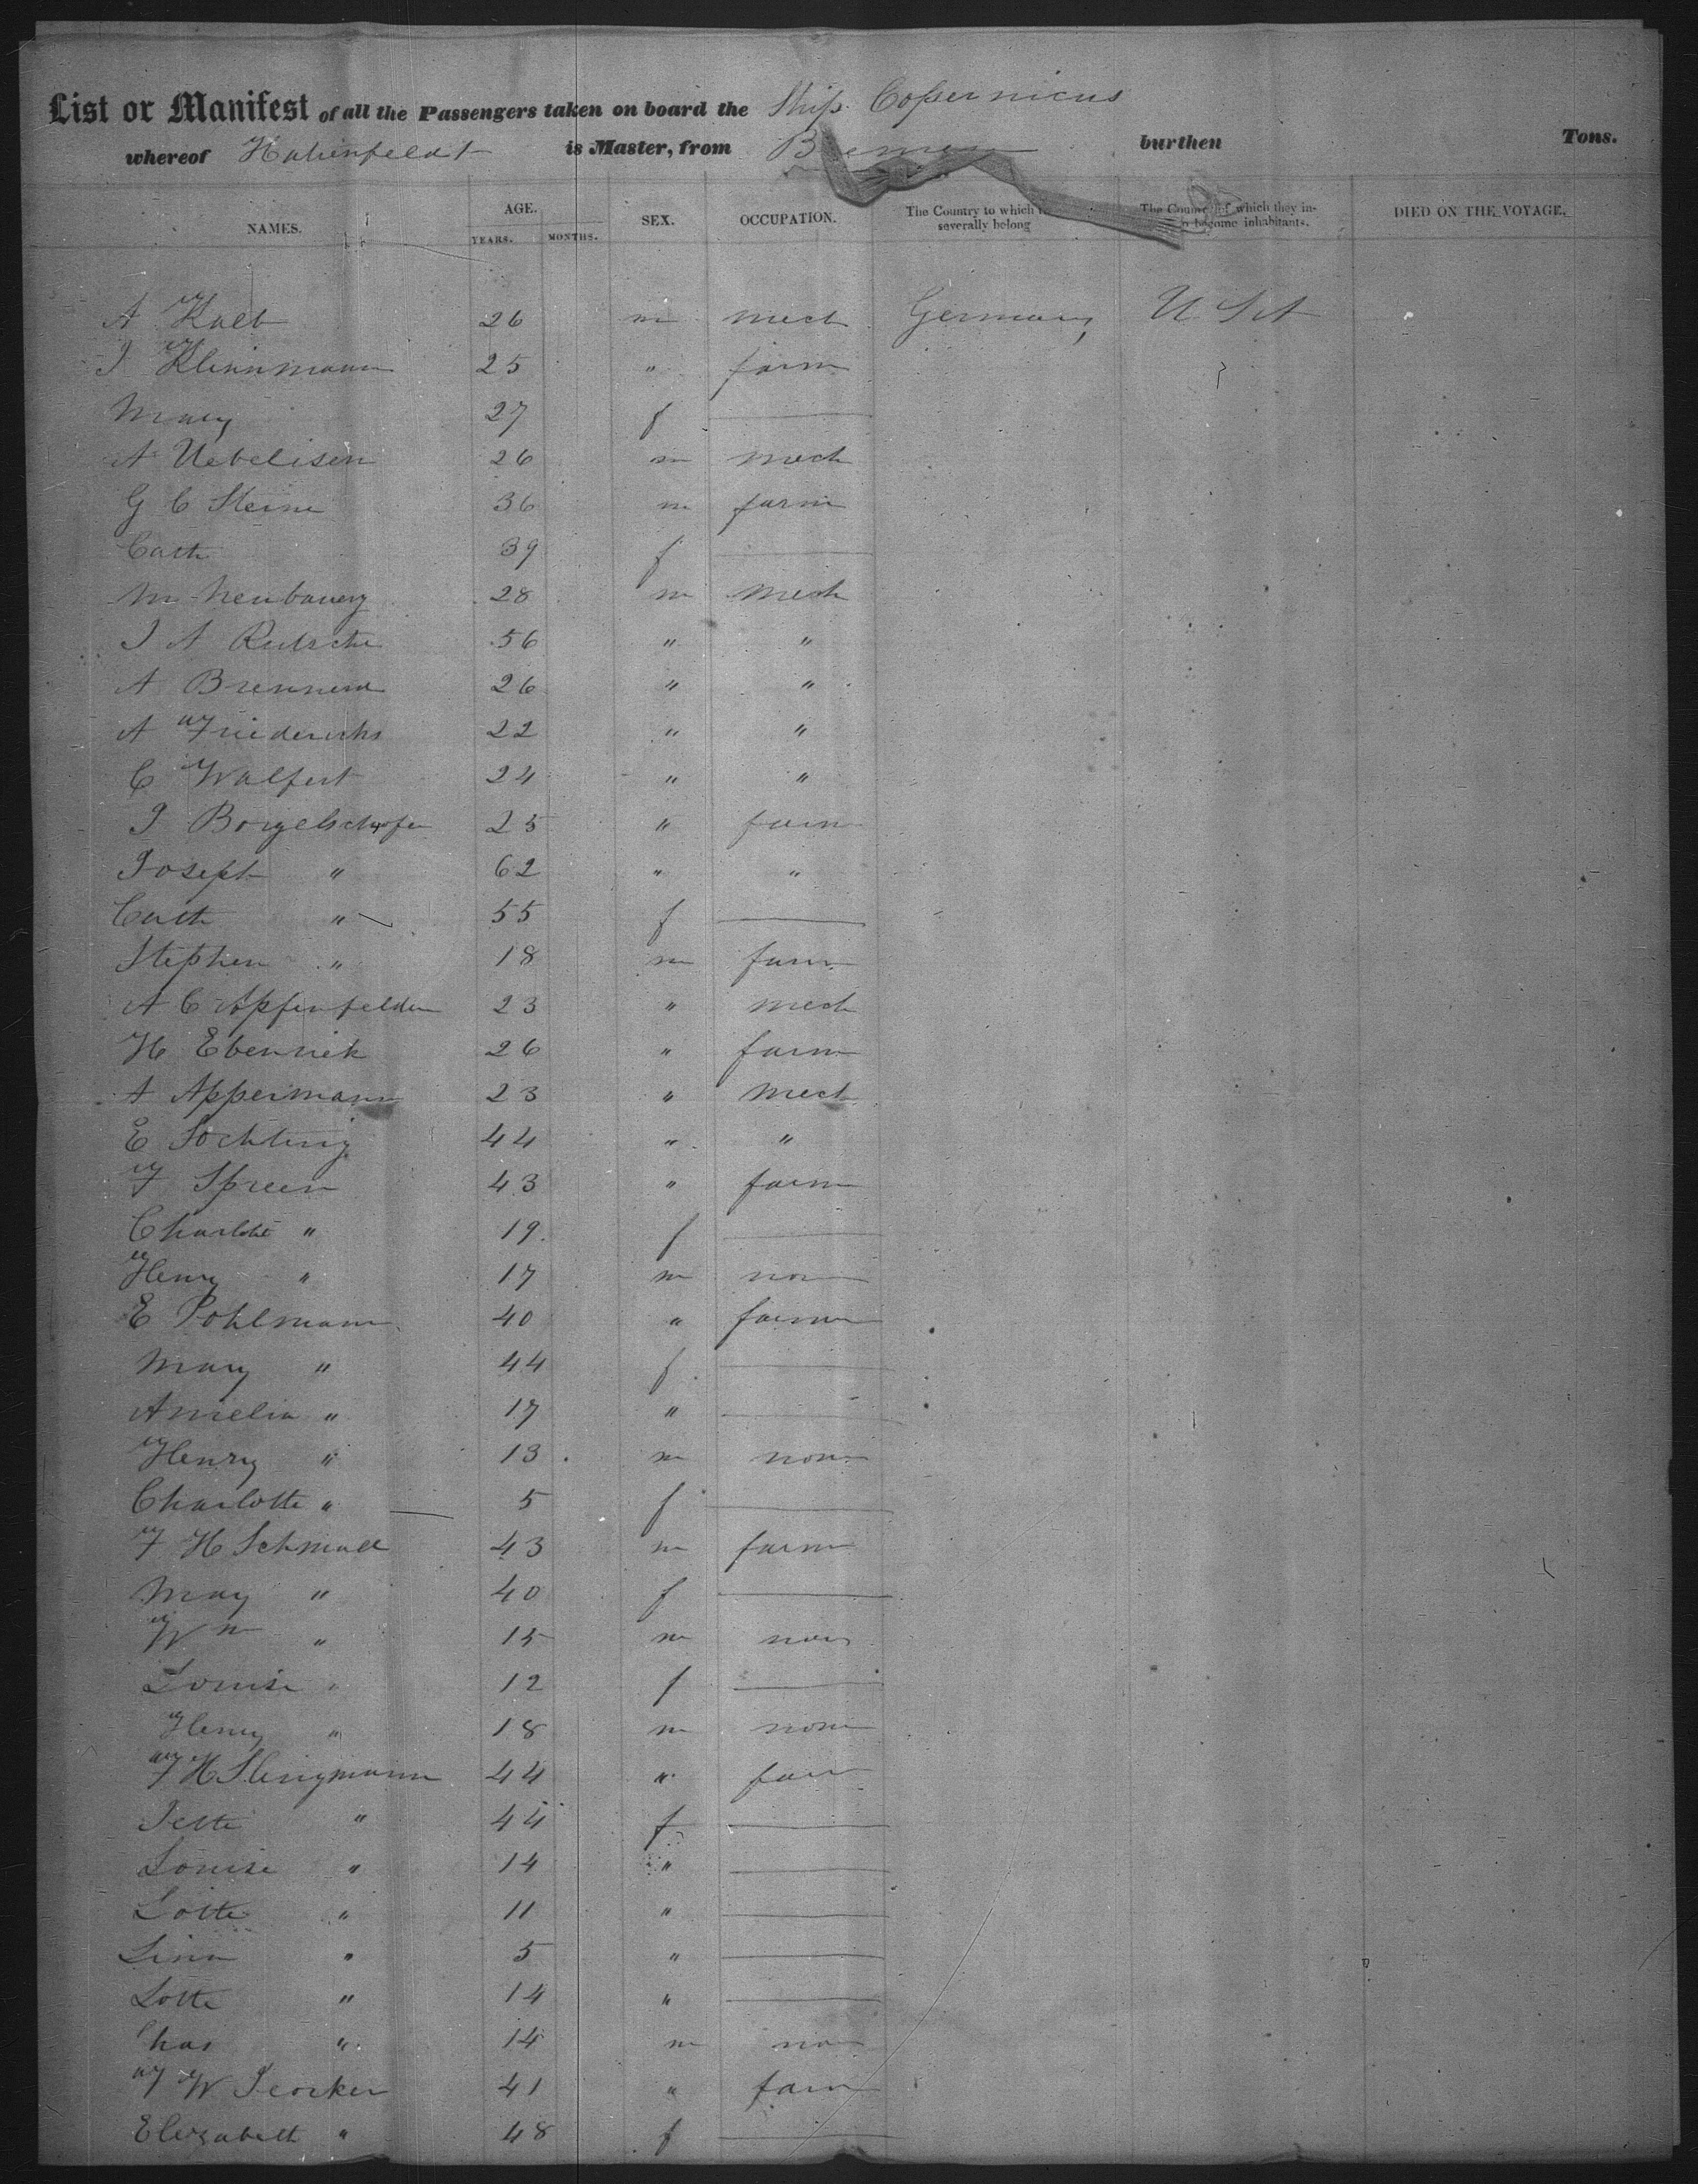 List or Manifest of all the Passengers taken on board the Ship Copernicus
whereof Hahenfeldt is Master, from Bremen burthen Tons.
NAMES. AGE. YEARS. MONTHS. SEX. OCCUPATION. The Country to which severally belong The Country of which they in- become inhabitants. DIED ON THE VOYAGE.
A Kalb 26 m mech Germany U S A
J Kleinmann 25 " farm
Mary 27 f
A Uebelisen 26 m mech
G C Stein 36 m farm
Cath 39 f
M Neubauer 28 m mech
J A 56 " "
A 26 " "
A Friederichs 22 " "
C Walfert 24 " "
J Borgelschofer 25 " farm
Joseph " 62 " "
Cath " 55 f
Stephen " 18 m farm
A C Apfenfelder 23 " mech
H Ebenriek 26 " farm
A Appermann 23 " mech
E Sochting 44 " "
F Spreen 43 " farm
Charlotte " 19 f
Henry " 17 m non
E Pohlmann 40 " farm
Mary " 44 f
Amelia " 17 "
Henry " 13 m non
Charlotte " 5 f
F H Schmall 43 m farm
Mary " 40 f
Wm " 15 m non
Louise " 12 f
Henry " 18 m non
F H Slingmann 44 " farm
Jette " 44 f
Louise " 14 "
Lotte " 11 "
Lina " 5 "
Lotte " 14 "
Chas " 14 m non
F W 41 " farm
Elizabeth " 48 f